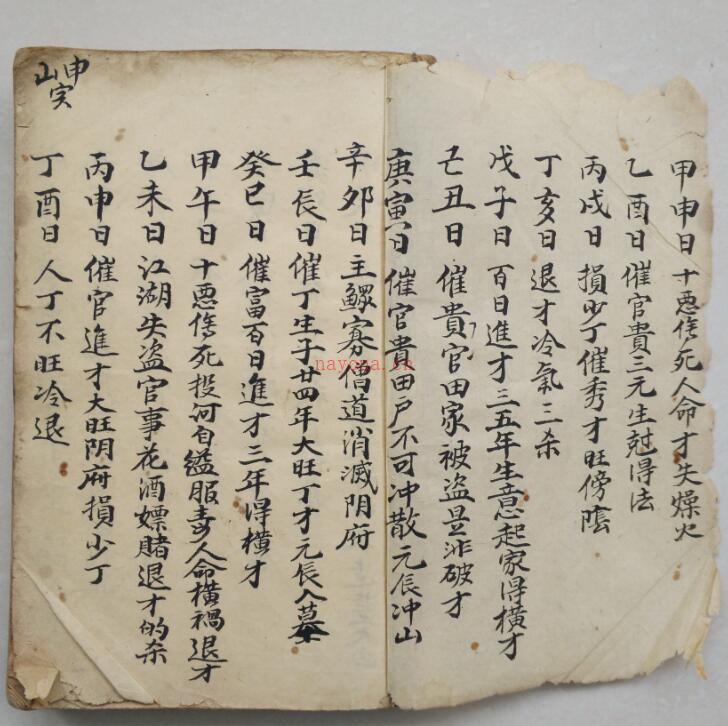 甲申日十悪傷死人命才失燥火
乙酉日催官貴三元生尅得法
丙戌日損少丁催秀才旺傍陰
丁亥日退才冷氣三杀
戊子日百日進才三五年生意起家得横才
己丑日催貴官田家被盗是非破才
庚寅日催官貴田戶不可冲散元辰冲山
辛夘日主鰥寡僧道消滅阴府
壬辰日催丁生子廿四年大旺丁才元辰入墓
癸巳日催富百日進才三年得横才
甲午日十悪傷死投河自缢服毒人命横禍退才
乙未日江湖失盗官事花酒嫖賭退才的杀
丙申日催官進才大旺阴府損少丁
丁酉日人丁不旺冷退
申山
nayona.cn